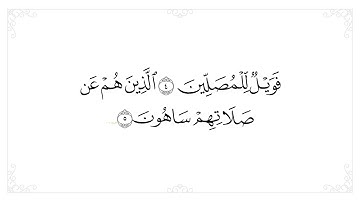 فَوَيْلٌ لِّلْمُصَلِّينَ ٤ الَّذِينَ هُمْ عَن
صَلَاتِهِمْ سَاهُونَ ٥